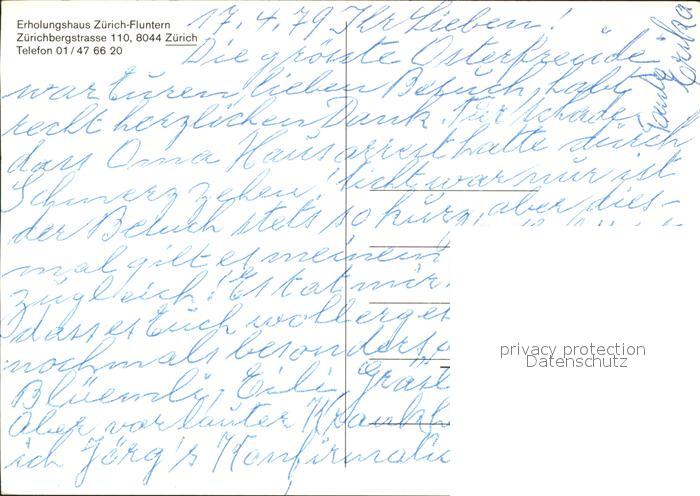 Erholungshaus Zürich-Fluntern
Zürichbergstrasse 110, 8044 Zürich
Telefon 01/47 66 20
17.4.79 Ihr Lieben!
Die grösste Osterfreude
war Euren lieben Besuch, habt
recht herzlichen Dank. Nur schade
dass Oma Hausarrest hatte durch
Schmerzzehen! war nur ist
der Besuch stets so kurz, aber dies-
mal gilt es meinem
zugleich! Es tat mir
dass es Euch wohl
nochmals besonders
Blüemli, Eili,
Aber vor lauter
ich Jörg's Konfirmatio
Tante Erika
privacy protection
Datenschutz